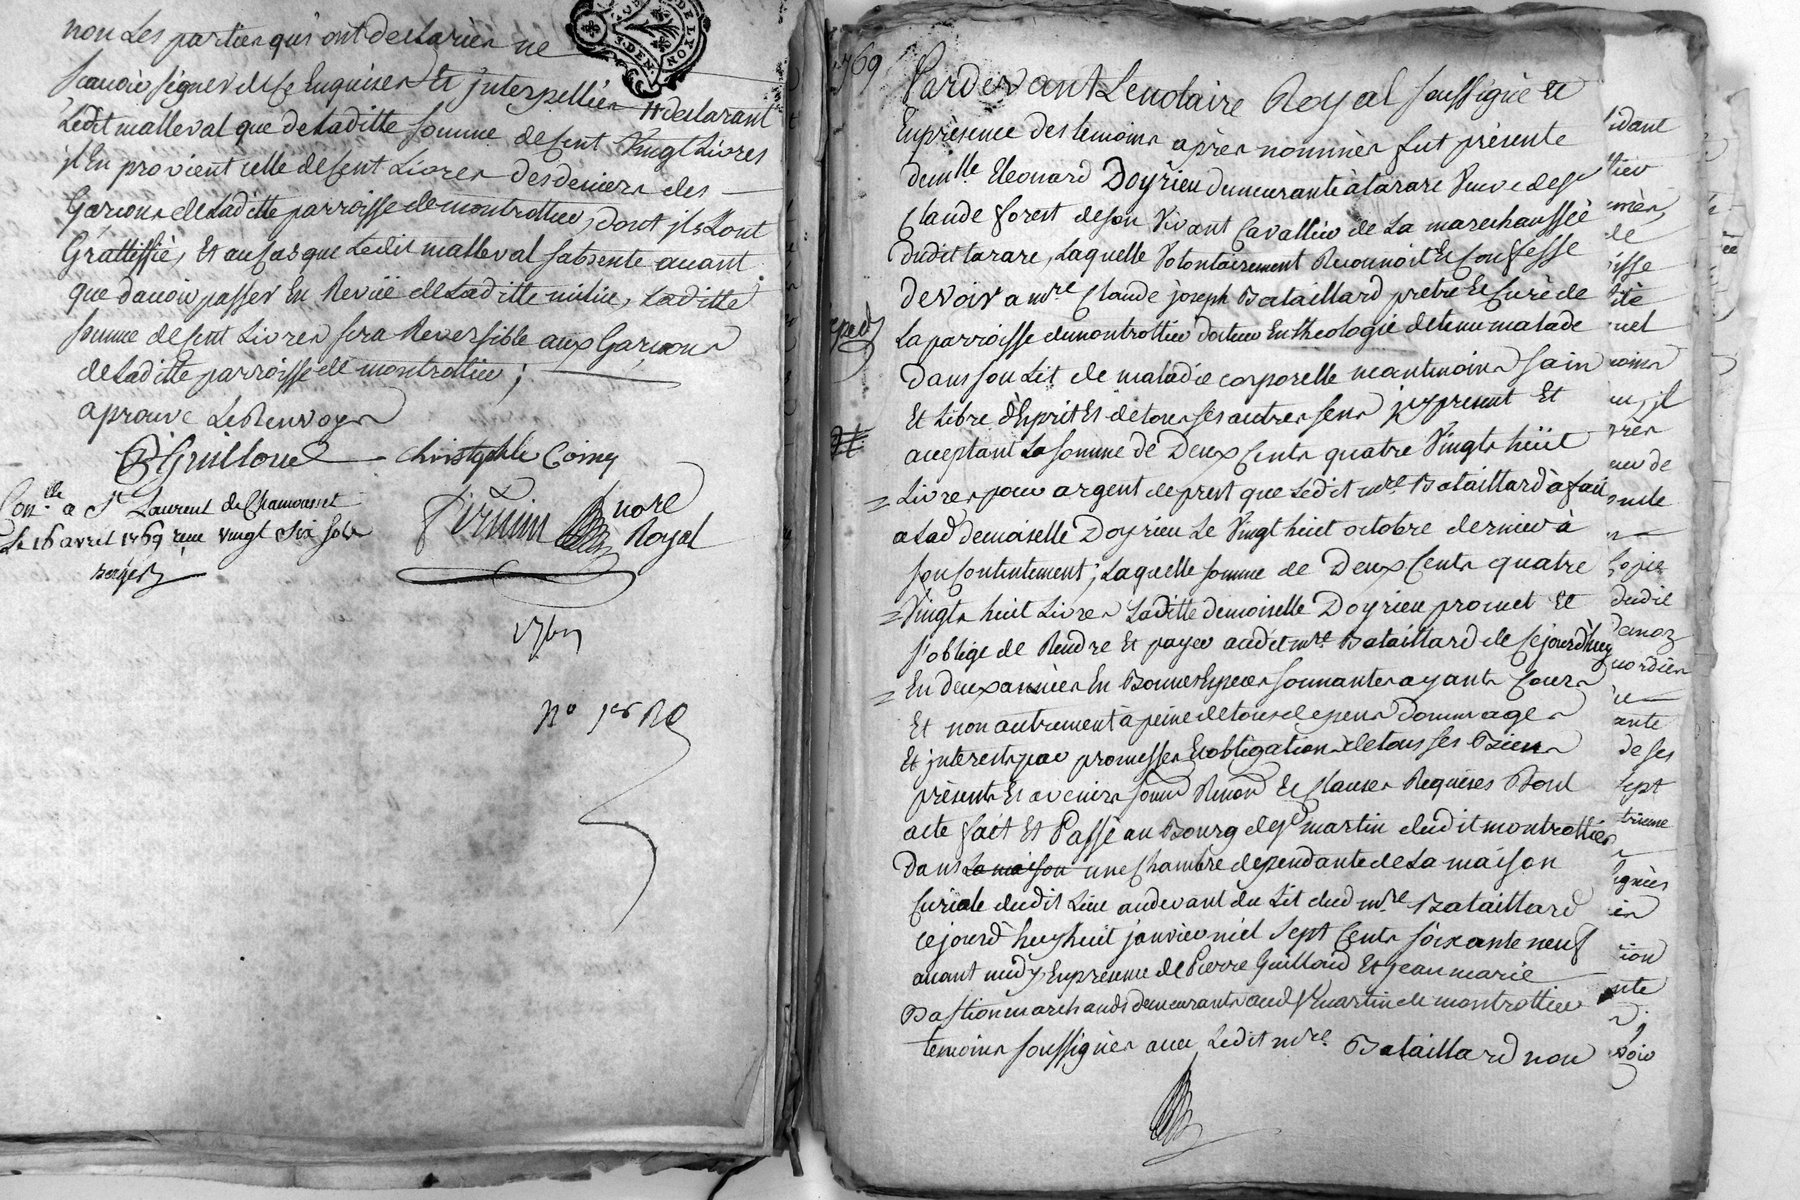 non Les partien quis ont declarien ne
scauoir signer de ce Enquisen Et jnterpellien # declarant
Ledit malleval que de Laditte somme de Cent Vingt Livres
jl En provient celle de Cent Livren des denien des
Garçons de Laditte parroisse de montrottier, dont jls Lont
Grattiffié, Et au Cas que Ledit malleval sabsente auant
que dauoir passer En Reviie de Laditte milice, Laditte
somme de Cent Livren sera Reversible aux Garçons
de Laditte parroisse de montrottier;
aprouve Le Renvoy
Guilloud Christophle Coiny
Con.lle a St Laurent de Chamousset
Le 16 avril 1769 reçu vingt six sols
nore
Royal
1769
No 1er
DE LYON
1769
Pardevant Le notaire Royal soussigné Et
En présence des témoins aprèn nommèn fut présente
demlle Eleonard Doyrieu demeurante à tarare Veuve de Sr
Claude forest de son Vivant Cavallier de La marechaussée
dudit tarare, Laquelle Volontairement Reconnoit Et Confesse
devoir a mre Claude joseph Bataillard pretre Et Curé de
La parroisse de montrottier docteur En theologie detenu malade
dans son Lit de maladie corporelle neantmoins sain
Et Libre d'Esprit Et de tous ses autres sens jcy present Et
acceptant La somme de Deux Cents quatre Vingts huit
Livres pour argent de prest que Ledit mre Bataillard à fait
a Lad demoiselle Doyrieu Le Vingt huit octobre dernier à
son Contentement; Laquelle somme de Deux Cents quatre
Vingts huit Livres Laditte demoiselle Doyrieu promet Et
s'oblige de Rendre Et payer audit mre Bataillard de Cejourdhuy
En deux années En Bonnes Especes sonnantes ayants Cours
Et non autrement à peine de tous depens Dommages
Et jnterests par promesses Et obligations de tous ses Biens
présents Et avenirs soum Renon Et Clauses Requises Dont
acte fait Et Passé au Bourg de St martin dudit montrottier
Dans La maison une Chambre dependante de La maison
Curiale dudit Lieu audevant du Lit dud mre Bataillard
cejourd'huy huit janvier mil sept Cents soixante neuf
avant midy En présence de Pierre Guilloud Et jean marie
Bastion marchands demeurants aud St martin de montrottier
temoins soussignés avec Ledit mre Bataillard non